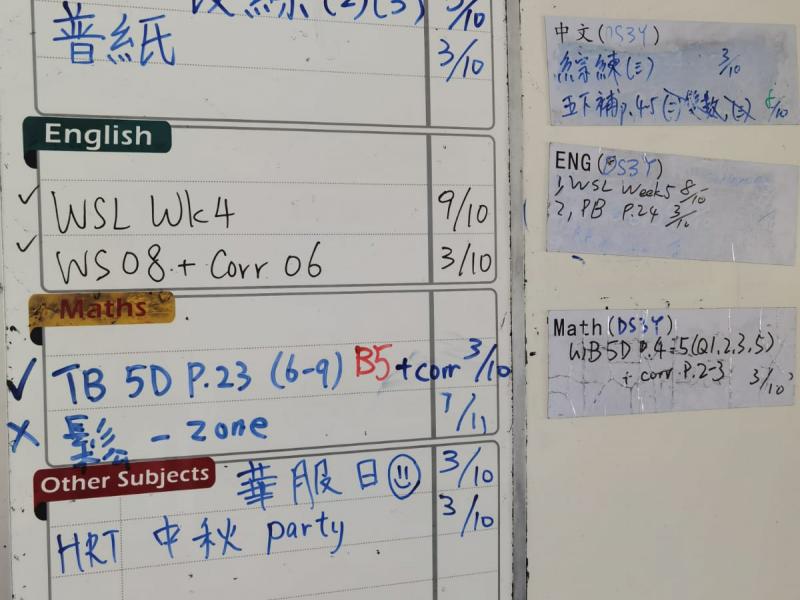 綜練(2)(3) 3/10
普紙 3/10
English
WSL Wk4 9/10
WS08 + Corr 06 3/10
Maths
TB 5D P.23 (6-9) B5 + corr 3/10
鬆 - zone 7/11
Other Subjects
華服日 3/10
HRT 中秋 party 3/10
中文(DS3Y)
綜練(三) 3/10
五下補p.4-5(二)雙數,(三) 8/10
ENG(DS3Y)
1, WSL Week5 8/10
2, PB P.24 3/10
Math(DS3Y)
WB 5D P.4-5(Q1,2,3,5)
+ corr P.2-3 3/10